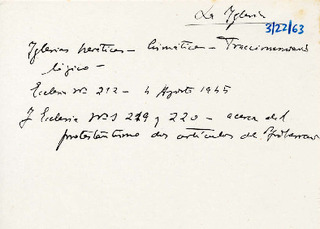 La Iglesia
3/22/63
Iglesias heréticas - Cismáticas -
lógico -
Ecclesia nº 212 - 4 Agosto 1945
Ecclesia nºs 219 y 220 - acerca del
protestantismo dos artículos de